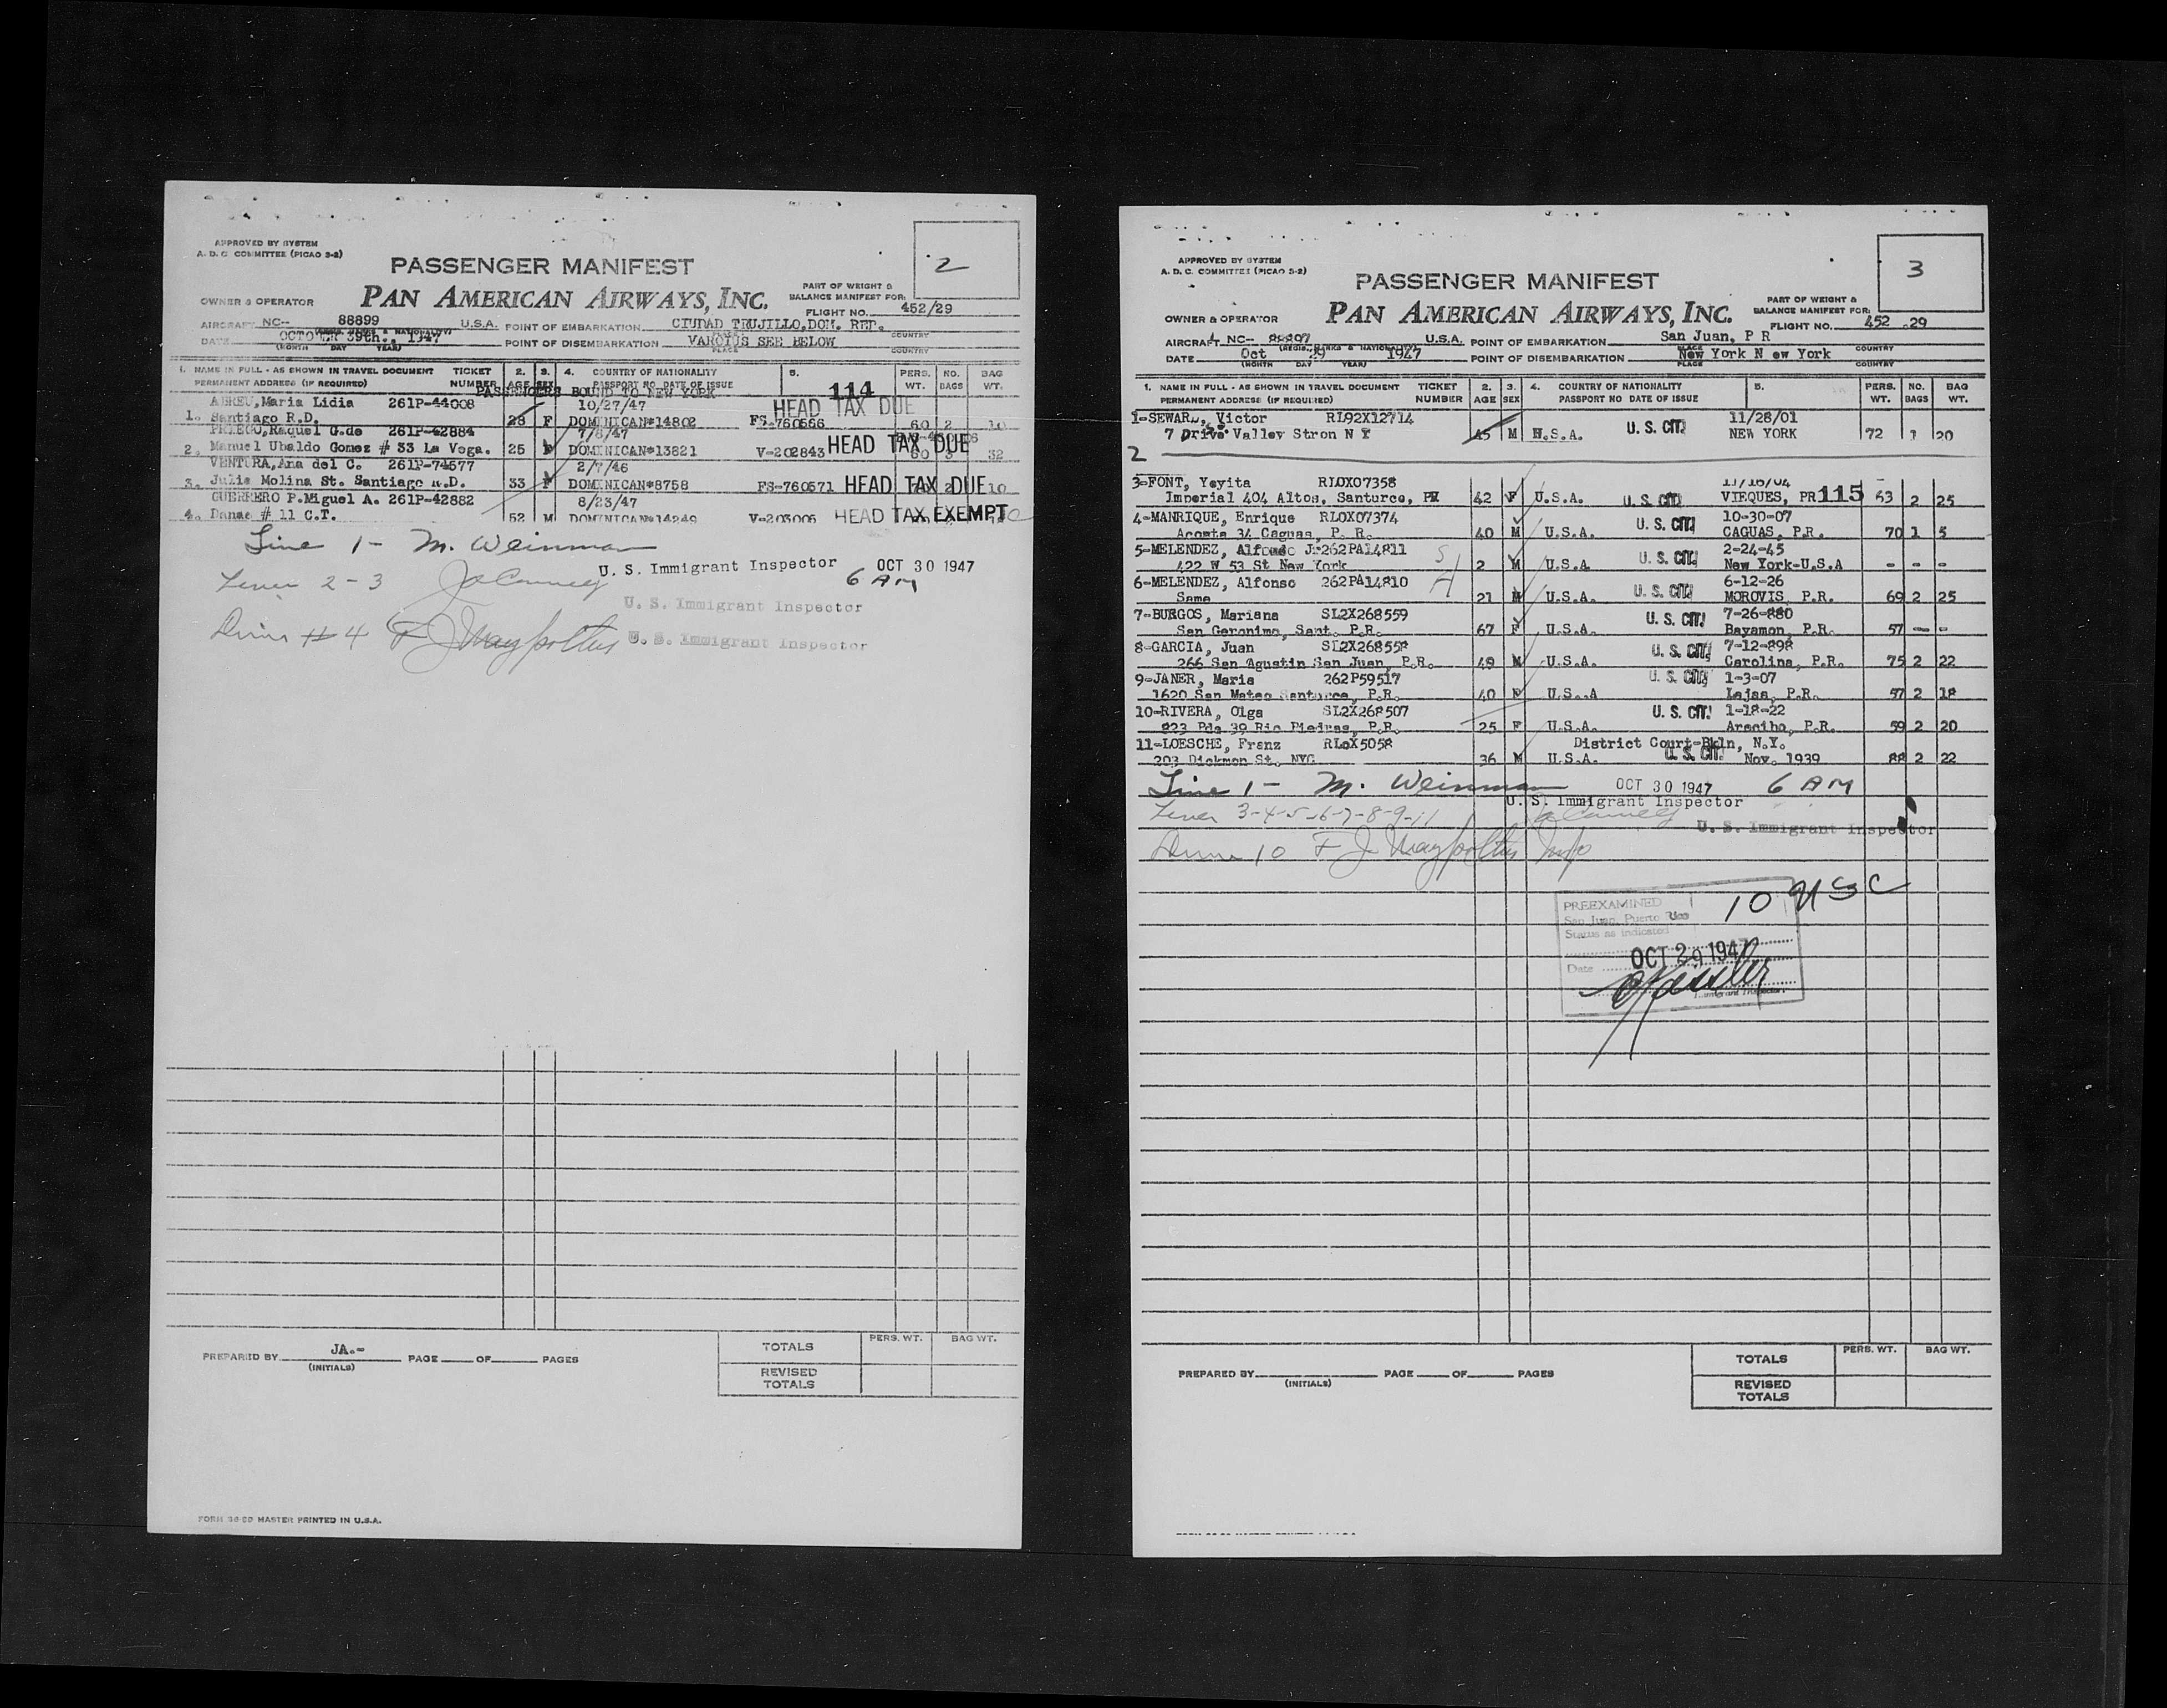 APPROVED BY SYSTEM
A. D. C. COMMITTEE (PICAO S-2)
PASSENGER MANIFEST
2
PAN AMERICAN AIRWAYS, INC.
PART OF WEIGHT &
BALANCE MANIFEST FOR:
OWNER & OPERATOR
FLIGHT NO. 452/29
AIRCRAFT NC-- 88899 U.S.A. POINT OF EMBARKATION CIUDAD TRUJILLO,DOM. REP.
(REGIS. MARKS & NATIONALITY) PLACE COUNTRY
DATE 1947 POINT OF DISEMBARKATION SEE BELOW
(MONTH DAY YEAR) PLACE COUNTRY
1. NAME IN FULL - AS SHOWN IN TRAVEL DOCUMENT TICKET 2. 3. 4. COUNTRY OF NATIONALITY 5. PERS. NO. BAG
PERMANENT ADDRESS (IF REQUIRED) NUMBER AGE SEX PASSPORT NO. DATE OF ISSUE WT. BAGS WT.
PASSENGERS BOUND TO NEW YORK 114
ABREU,Maria Lidia 261P-44008 10/27/47 HEAD TAX DUE
1. Santiago R.D. 28 F DOMINICAN#14802 FS-760556 60 2 10
PRIEGO,Raquel G.de 261P-42884 7/8/47
2. Manuel Ubaldo Gomez # 33 La Vega. 25 F DOMINICAN#13821 V-202843 HEAD TAX DUE 32
VENTURA,Ana del C. 261P-74577 2/7/46
3. Julia Molina St. Santiago R.D. 33 F DOMINICAN#8758 FS-760571 HEAD TAX DUE 10
GUERRERO P.Miguel A. 261P-42882 8/23/47
4. Danae # 11 C.T. 52 M DOMINICAN#14249 V-203005 HEAD TAX EXEMPT
Line 1 - M. Weinman
U. S. Immigrant Inspector OCT 30 1947
6 AM
Lines 2-3
U. S. Immigrant Inspector
#4
U. S. Immigrant Inspector
PREPARED BY JA.- PAGE OF PAGES
(INITIALS)
TOTALS PERS. WT. BAG WT.
REVISED
TOTALS
FORM 36-80 MASTER PRINTED IN U.S.A.
APPROVED BY SYSTEM
A. D. C. COMMITTEE (PICAO S-2)
PASSENGER MANIFEST
3
PAN AMERICAN AIRWAYS, INC.
PART OF WEIGHT &
BALANCE MANIFEST FOR:
OWNER & OPERATOR
FLIGHT NO. 452 .29
AIRCRAFT NC-- U.S.A. POINT OF EMBARKATION San Juan, P R
(REGIS. MARKS & NATIONALITY) PLACE COUNTRY
DATE Oct 29 1947 POINT OF DISEMBARKATION New York N ew York
(MONTH DAY YEAR) PLACE COUNTRY
1. NAME IN FULL - AS SHOWN IN TRAVEL DOCUMENT TICKET 2. 3. 4. COUNTRY OF NATIONALITY 5. PERS. NO. BAG
PERMANENT ADDRESS (IF REQUIRED) NUMBER AGE SEX PASSPORT NO DATE OF ISSUE WT. BAGS WT.
1-SEWARD, Victor RL92X12714 11/28/01
7 Drive Valley Stron N Y 45 M U.S.A. U. S. CIT. NEW YORK 72 1 20
2
3-FONT, Yeyita RLOX07358 11/16/04
Imperial 404 Altos, Santurce, PR 42 F U.S.A. U. S. CIT. VIEQUES, PR 115 63 2 25
4-MANRIQUE, Enrique RLOX07374 U. S. CIT. 10-30-07
Acosta 34 Caguas, P. R. 40 M U.S.A. CAGUAS, P.R. 70 1 5
5-MELENDEZ, Alfonso Jr262PA14811 U. S. CIT. 2-24-45
422 W 53 St New York 2 M U.S.A New York-U.S.A - - -
6-MELENDEZ, Alfonso 262PA14810 U. S. CIT. 6-12-26
Same 21 M U.S.A. MOROVIS, P.R. 69 2 25
7-BURGOS, Mariana SL2X268559 U. S. CIT. 7-26-880
San Geronimo, Sant. P.R. 67 F U.S.A. Bayamon, P.R. 57 -- -
8-GARCIA, Juan SL2X268558 U. S. CIT. 7-12-898
266 San Agustin San Juan, P.R. 49 M U.S.A. Carolina, P.R. 75 2 22
9-JANER, Maria 262P59517 U. S. CIT. 1-3-07
1620 San Mateo Santurce, P.R. 40 F U.S..A Lajas, P.R. 57 2 18
10-RIVERA, Olga SL2X268507 U. S. CIT. 1-18-22
823 Pda 39 Rio Piedras, P.R. 25 F U.S.A. Arecibo, P.R. 59 2 20
11-LOESCHE, Franz RLoX5058 District Court-Bkln, N.Y.
203 Dickman St. NYC 36 M U.S.A. U. S. CIT. Nov. 1939 88 2 22
Line 1 - M. Weinman OCT 30 1947 6 AM
U. S. Immigrant Inspector
Lines 3-4-5-6-7-8-9-11
U. S. Immigrant Inspector
10
10 USC
PREEXAMINED
San Juan, Puerto Rico
Status as indicated
Date OCT 29 1947
Immigrant Inspector.
PREPARED BY PAGE OF PAGES
(INITIALS)
TOTALS PERS. WT. BAG WT.
REVISED
TOTALS